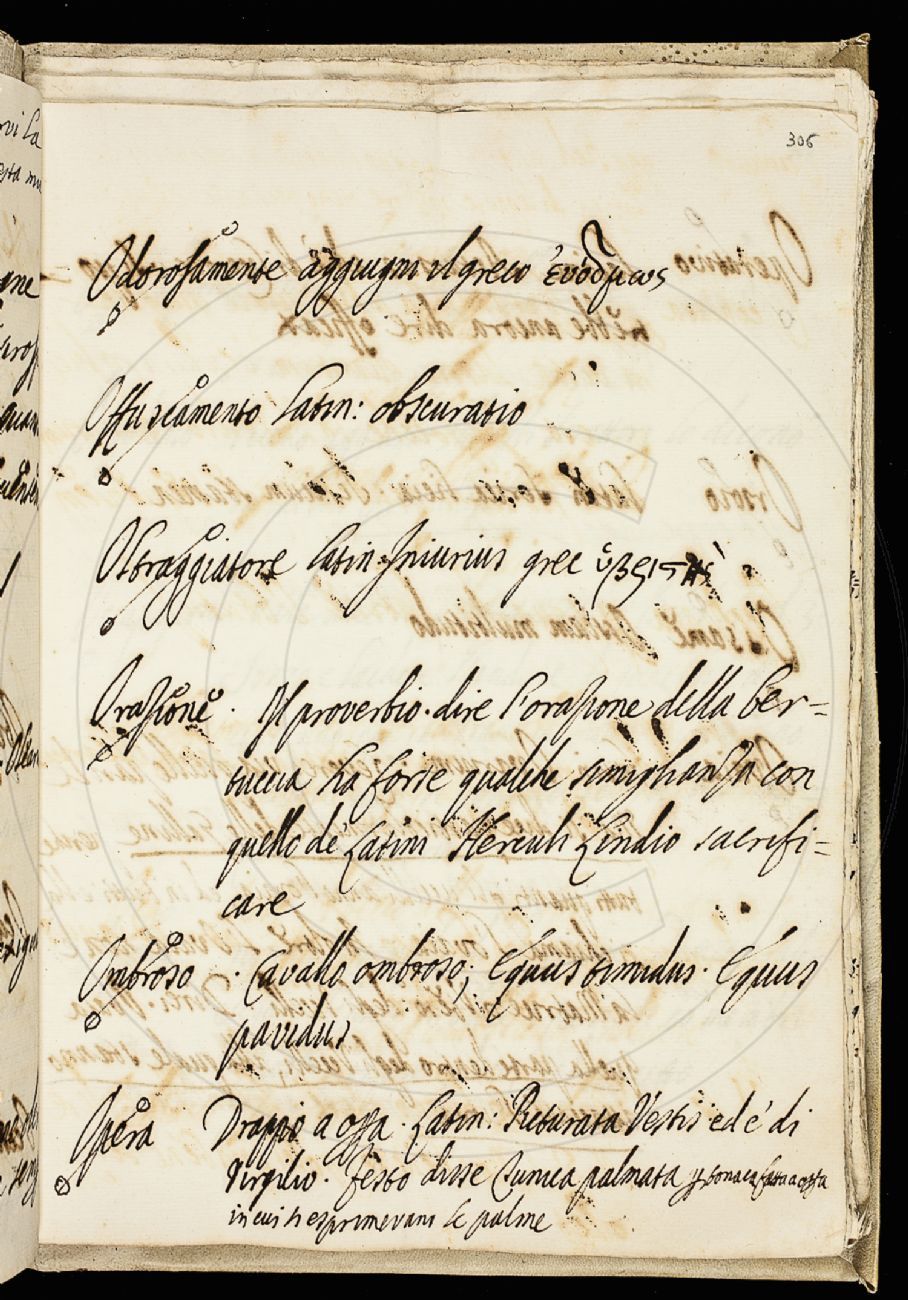 306
Odorosamente aggiugni il greco ἐυόδμως
Offuscamento Latin: obscuratio
Oltraggiatore Latin. Iniurius grec ὑβριστής
Orazione. Il proverbio. dire l'orazione della ber=
tuccia ha forse qualche simiglianza con
quello de' Latini Herculi Lindio sacrifi=
care
Ombroso. Cavallo ombroso; Equus timidus. Equus
pavidus
Opera Drappo a opa. Latin: Picturata Vestis ed è di
Virgilio. Festo disse Tunica palmata p tonaca fatta a opa
in cui si esprimevano le palme